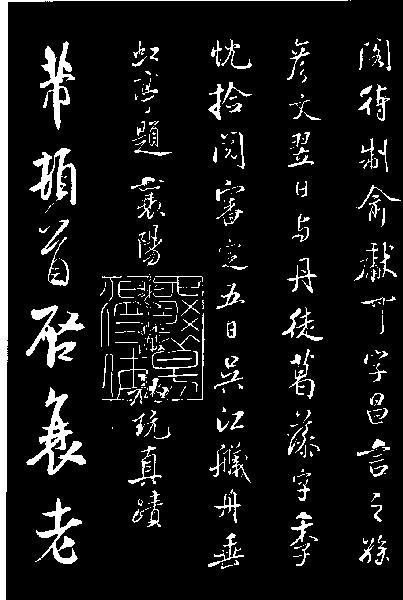 閣待制俞獻可字昌言之孫
彦文翌日与丹徒葛藻字季
忱拾閱審定五日吳江艤舟垂
虹亭題 襄陽 秘玩真蹟
芾頓首启衰老